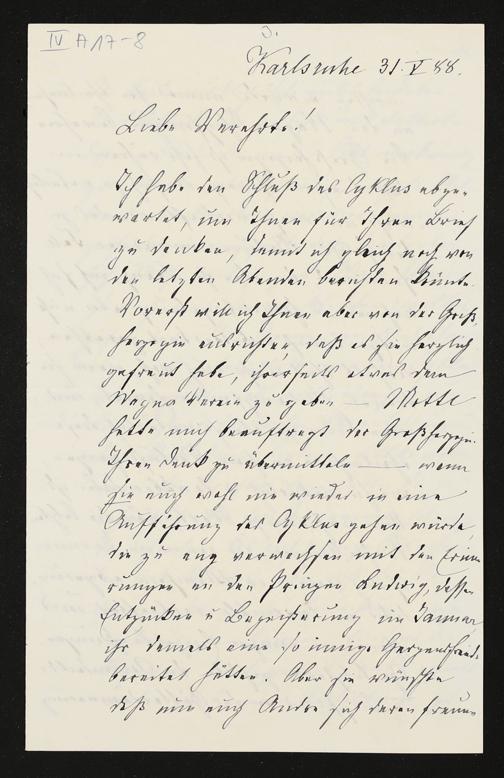 IV A 17-8
3.
Karlsruhe 31. V 88.
Liebe Verehrte!
Ich habe den Schluß des Cyklus abge-
wartet, um Ihnen für Ihren Brief
zu danken, damit ich gleich noch von
den letzten Abenden berichten könnte.
Vorerst will ich Ihnen aber von der Groß-
herzogin ausrichten, daß es sie herzlich
gefreut habe, ihrerseits etwas dem
Wagner Verein zu geben — Mottl
hatte mich beauftragt der Großherzogin
Ihren Dank zu übermitteln — wenn
sie auch wohl nie wieder in eine
Aufführung des Cyklus gehen würde,
die zu eng verwachsen mit den Erinne-
rungen an den Prinzen Ludwig, dessen
Entzücken u Begeisterung im Januar
ihr damals eine so innige Herzensfreude
bereitet hätten. Aber sie wünschte
daß nun auch Andre sich daran freuen